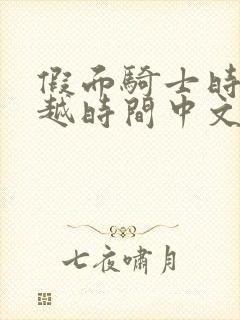 假而騎士時
越時間中文
七夜嘯月